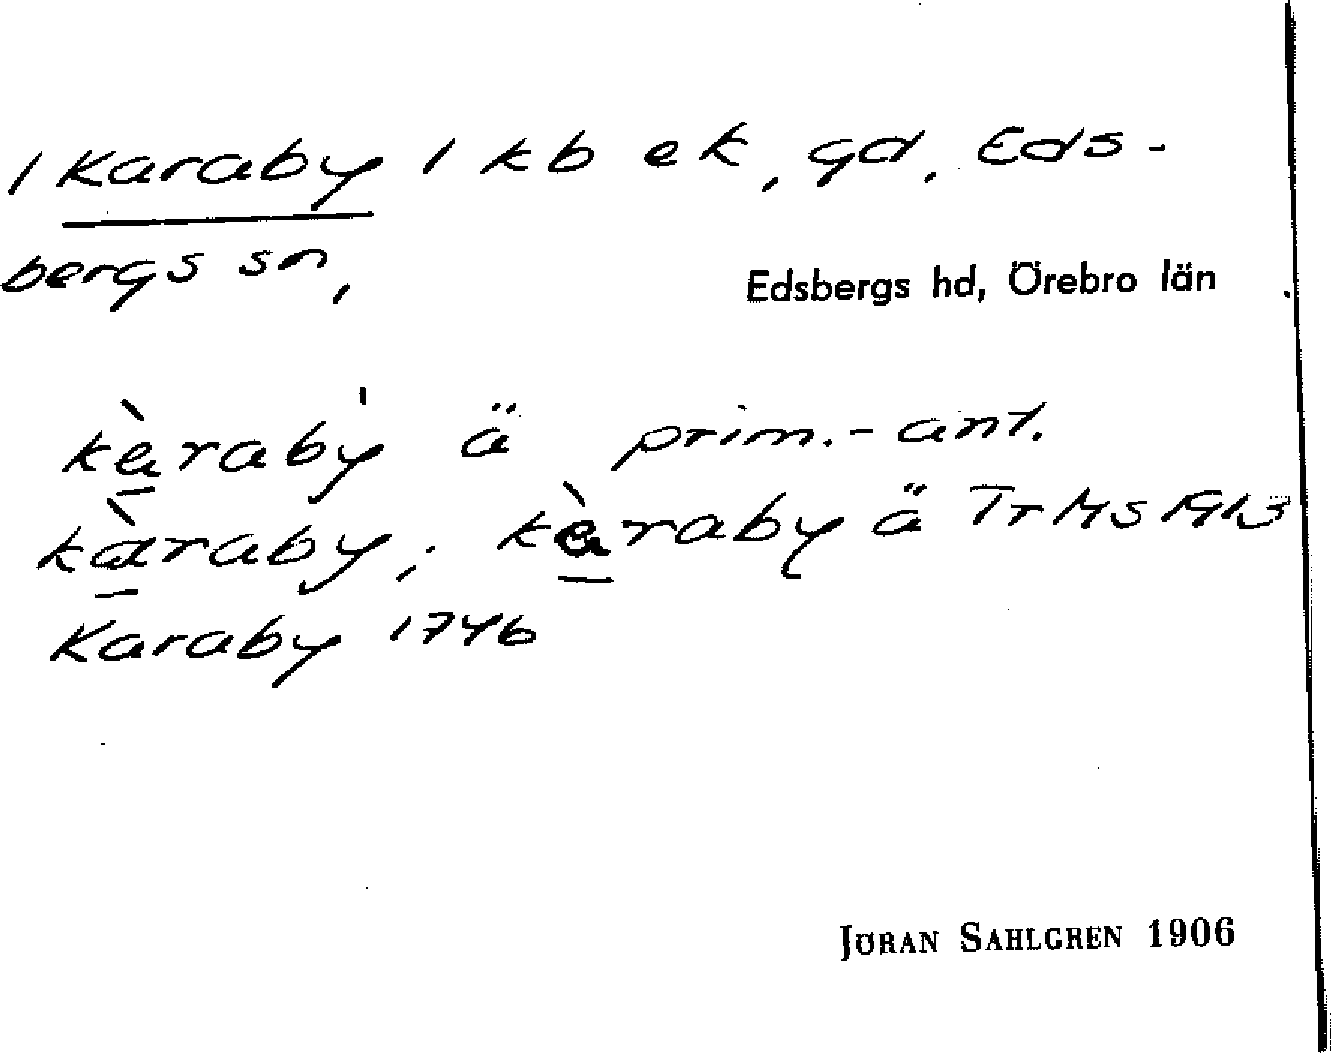 1 Karaby 1 kb ek, gd, Eds-
bergs sn,
Edsbergs hd, Örebro län
kàraby̍ ä prim.-ant.
kàraby; kàraby ä Tr Ms 1913
Karaby 1746
JÖRAN SAHLGREN 1906